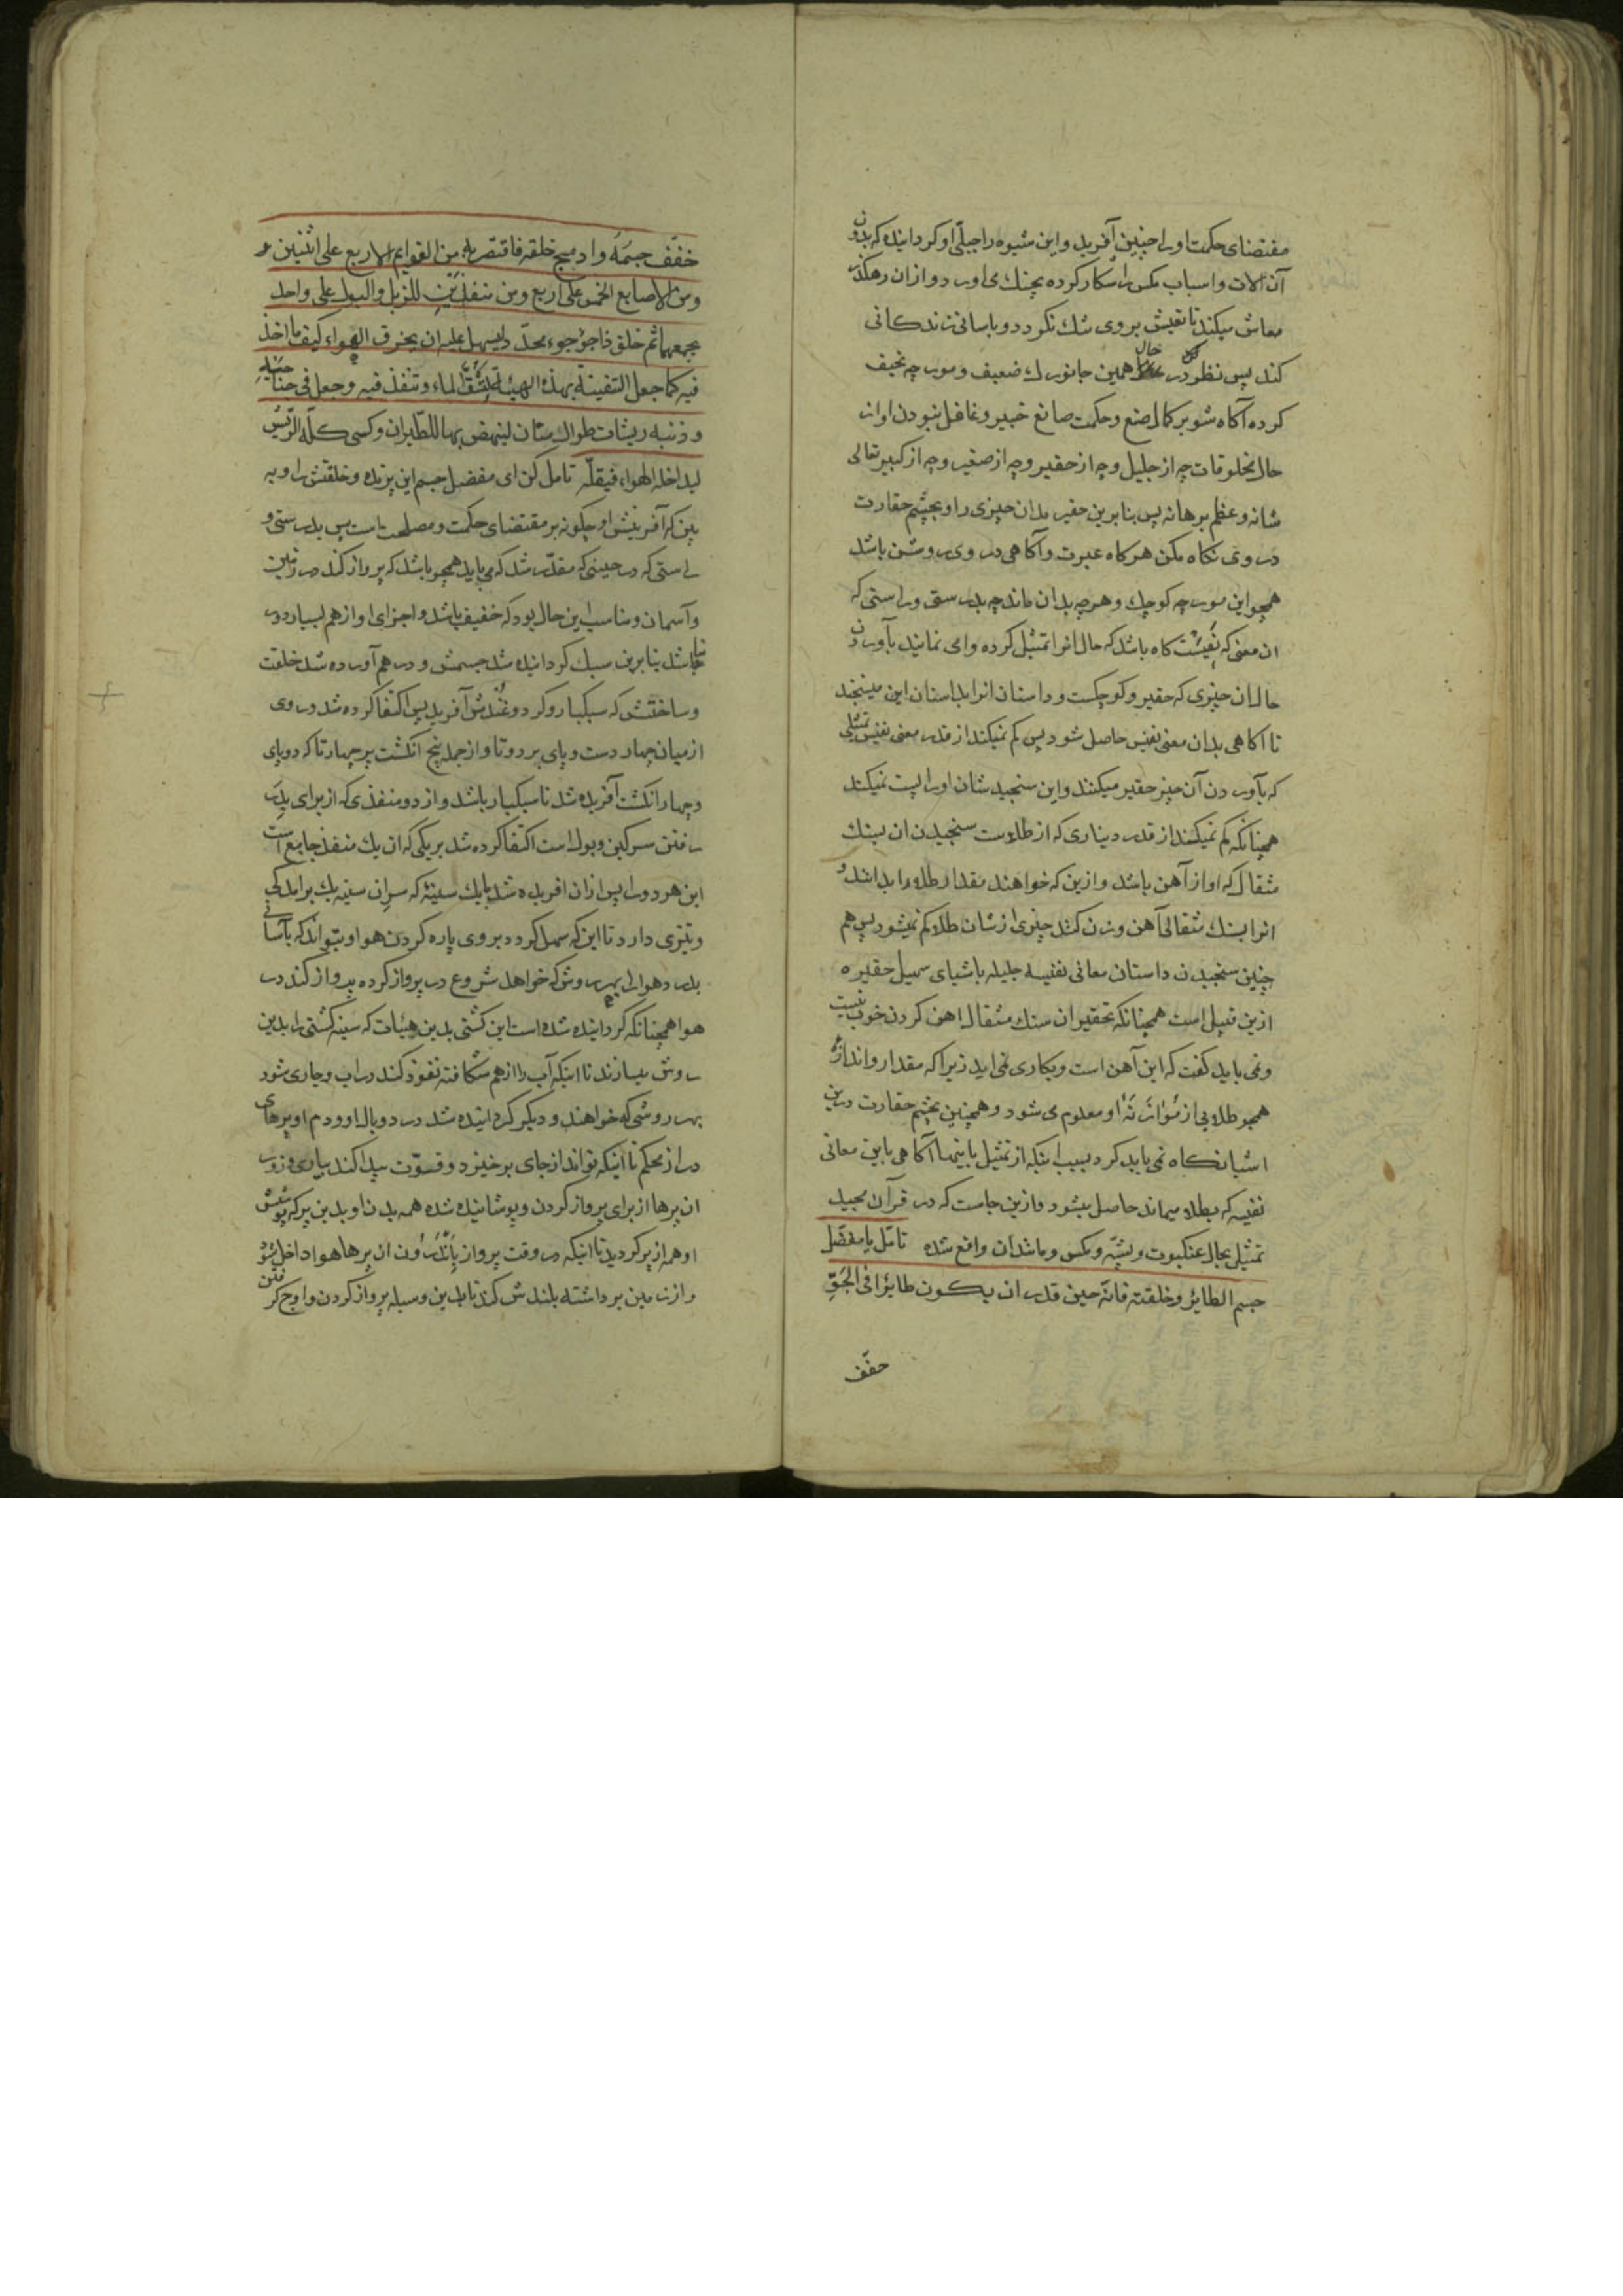 مقتضای حکمت اورا چنین آفرید واین شیوه را جبلّی او کردانیده که بدون
آن الات واسباب مکس را شکار کرده بچنک می اورد واز ان رهکذر
معاش میکند تا تعیش بروی تنک نکردد و باسانی زندکانی
کند پس نظر کن در حال همین جانورك ضعیف و مورچه نحیف
کرده آکاه شو بر کمال صنع وحکمت صانع خبیر وغافل نبودن او از
حال مخلوقات چه از جلیل وچه از حقیر وچه از صغیر وچه از کبیر تعالی
شانه وعظم برهانه پس بنابرین حقیر مدان چیزی را و بچشم حقارت
در وی نکاه مکن هرکاه عبرت وآکاهی در وی روشن باشد
همچو این مورچه کوچك وهرچه بدان ماند چه بدرستی وراستی که
ان معنی که نفیست کاه باشد که حال انرا تمثیل کرده وامی نمایند بآوردن
حال ان چیزی که حقیر و کوچکست و داستان انرا بداستان این میسنجند
تا آکاهی بدان معنی نفیس حاصل شود پس کم نمیکند از قدر معنی نفیس تمثیلی
که بآوردن آن چیز حقیر میکنند واین سنجید شان اورا پست نمیکند
همچنانکه کم نمیکند از قدر دیناری که از طلاست سنجیدن ان بسنك
مثقال که او از آهن باشد وازین که خواهند مقدار طلا را بدانند و
انرا بسنك مثقال آهن وزن کنند چیزی از شان طلا کم نمیشود پس هم
چنین سنجیدن داستان معانی نفیسه جلیله باشیای سهیل حقیره
ازین قبیل است همچنانکه تحقیر ان سنك مثقال اهن کردن خوب نیست
ونمی باید کفت که این آهن است وبکاری نمی اید زیرا که مقدار واندازهٔ
همچو طلایی از مُوٰازَنَهٔ او معلوم می شود وهمچنین بچشم حقارت درین
اشیا نکاه نمی باید کرد بسبب اینکه از تمثیل باینها آکاهی باین معانی
نفیسه که بطلا میماند حاصل میشود وازین جاست که در قرآن مجید
تمثیل بحال عنکبوت و پشّه و مکس و مانند ان واقع شده تامّل یا مفضّل
جسم الطایر وخلقته فانّه حین قدر ان یکون طایرًا فی الجَوِّ
خفّف
خفّف جسمَهُ وادمج خلقه فاقتصر به من القوایم الاربع علی اثنین و
ومن الاصابع الخمس علی اربع ومن منفذین للزبل والبول علی واحد
یجمعهما ثم خلق ذا جؤجوء محدّد لیسهل علیه ان یخرق الهواء کیف ما اخذ
فیه کما جعل السّفینة بهذه الهیئة لتشقّ الماء وتنفذ فیه وجعل فی جناحیه
و ذنبه ریشات طوال متان لینهض بها للطیران وکسی کلّه الرّیش
لیداخله الهواء فیقلّه تامل کن ای مفضل جسم این پرنده وخلقتش را و به
بین که آفرینش او چکونه بر مقتضای حکمت ومصلحت است پس بدرستی و
راستی که در حینی که مقدّر شد که می باید همچو باشد که پرواز کند در زمین
وآسمان ومناسب این حال بود که خفیف باشد واجزای او از هم بسیار دور
نباشد بنابرین سبك کردانیده شد جسمش و درهم آورده شد خلقت
وساختش که سبکبار و کرد وغُندش آفرید پس اکتفا کرده شد در وی
از میان چهار دست وپای بر دوتا واز جمله پنج انکشت بر چهارتا که دوپای
وچهار انکشت آفریده شد تا سبکبار باشد واز دو منفذی که از برای بدر
رفتن سرکین وبول است اکتفا کرده شد بر یکی که ان یك منفذ جامع است
این هردو را پس ازان افریده شد بایك سینهٔ که سر ان سینه یك برامدکی
وتیزی دارد تا این که سهل کردد بروی پاره کردن هوا و بتواند که بآسانی
بدرد هوا را بهر روش که خواهد شروع در پرواز کرده پرواز کند در
هوا همچنانکه کردانیده شده است این کشتی بدین هیئات که سینه کشتی را بدین
روش میسازند تا اینکه آب را از هم شکافته نفوذ کند در اب وجاری شود
بهر روشی که خواهند و دیکر کردانیده شد در دوبال او ودم او پرهای
دراز محکم تا اینکه تواند از جای برخیزد وقوّت پیدا کند بیاری وزور
ان پرها از برای پرواز کردن وپوشانیده شده همه بدن او بدین پر که پوشش
او همه از پر کردید تا اینکه در وقت پرواز بِاَنْدَرُون ان پرها هوا داخل شود
واز زمین برداشته بلندش کند تا بدین وسیله پرواز کردن واوج کرفتن